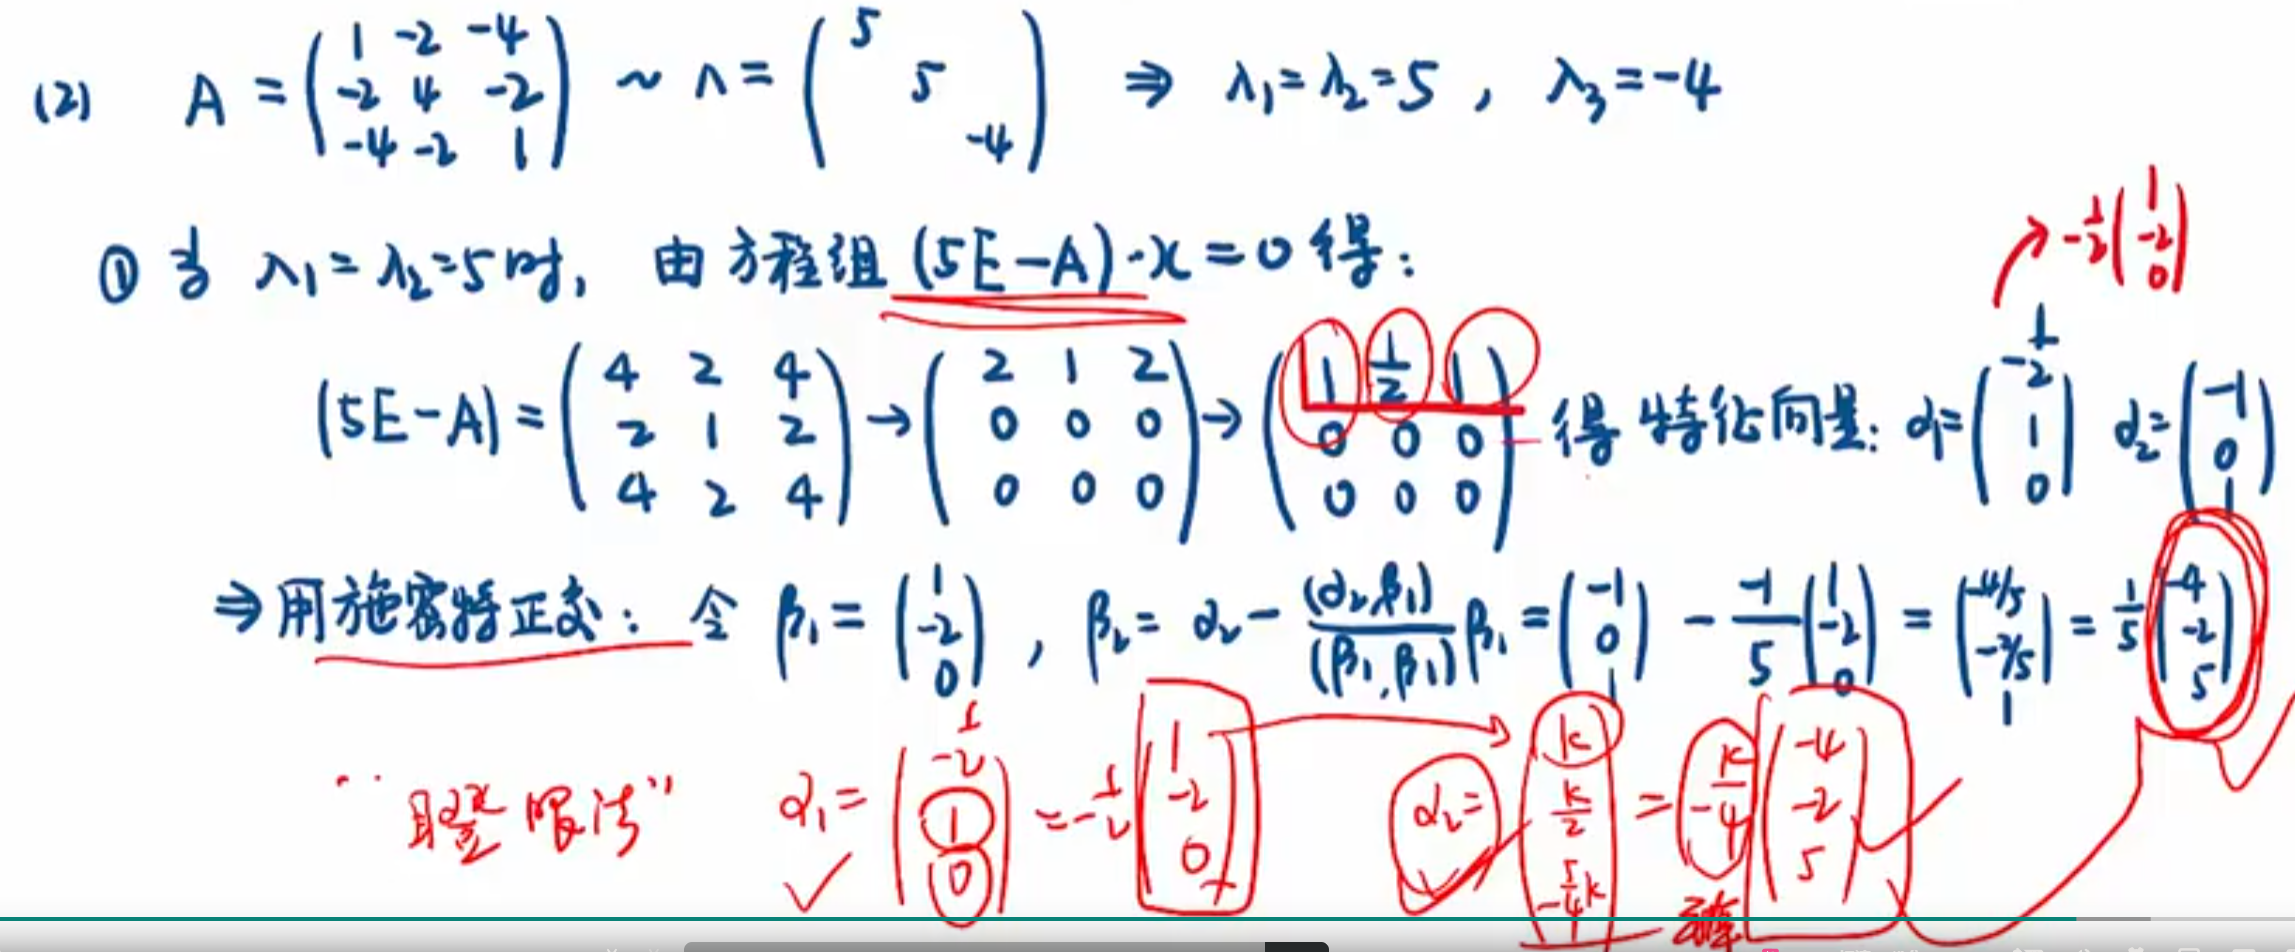 (2) A = (1 -2 -4; -2 4 -2; -4 -2 1) ~ Λ = (5; 5; -4) ⇒ λ₁=λ₂=5, λ₃=-4
-1/2(1 -2 0)
① 当 λ₁=λ₂=5时, 由方程组 (5E-A)·x=0 得:
(5E-A) = (4 2 4; 2 1 2; 4 2 4) → (2 1 2; 0 0 0; 0 0 0) → (1 1/2 1; 0 0 0; 0 0 0) 得特征向量: α₁=(-1/2 1 0) α₂=(-1 0 1)
⇒用施密特正交: 令 β₁ = (1 -2 0), β₂ = α₂ - (α₂,β₁)/(β₁,β₁) β₁ = (-1 0 1) - -1/5 (1 -2 0) = (-4/5 -2/5 1) = 1/5 (-4 -2 5)
"瞪眼法" α₁ = (-1/2 1 0) = -1/2 (1 -2 0) α₂ = (k k/2 -5/4k) = -k/4 (-4 -2 5)